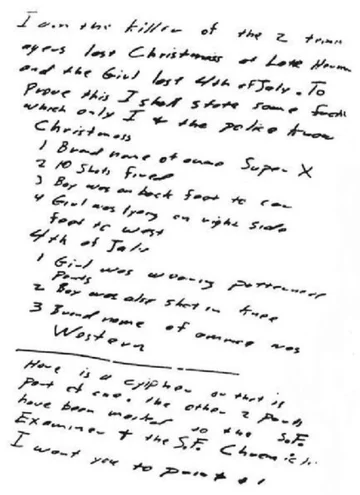 I am the killer of the 2 teen
agers last Christmass at Lake Herman
and the Girl last 4th of July. To
Prove this I shall state some facts
which only I + the police know
Christmass
1 Brand name of ammo Super X
2 10 Shots fired
3 Boy was on back feet to car
4 Girl was lyeing on right side
feet to west
4th of July
1 Girl was wearing patterned
pants
2 Boy was also shot in knee
3 Brand name of ammo was
Western
Here is a cipher or that is
part of one. the other 2 parts
have been mailed to the S.F.
Examiner + the S.F. Chronicle
I want you to print